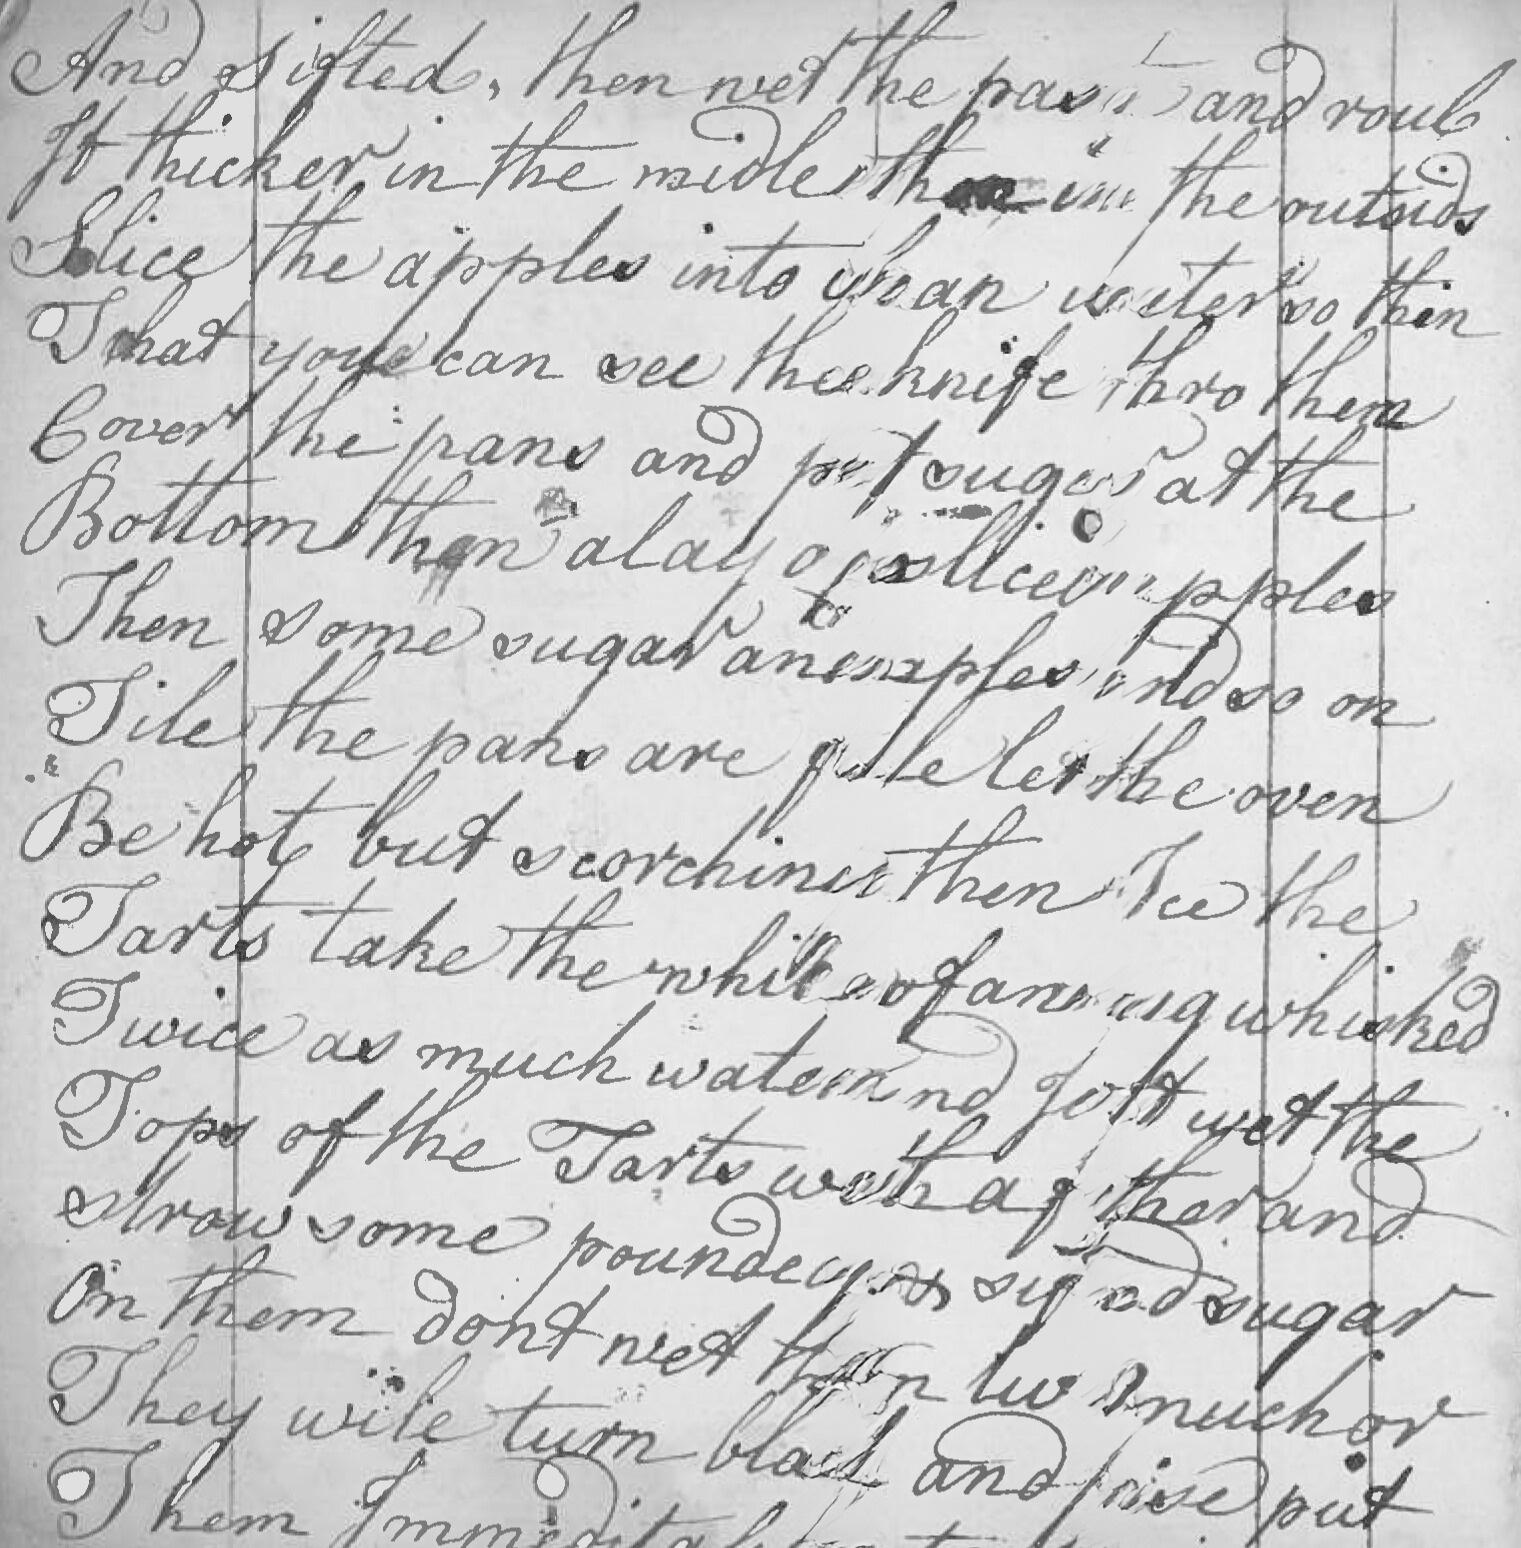 And sifted, then wet the past and roul
It thicker in the midle then in the outsids
Slice the apples into clean water so thin
That youe can see the knife thro them
Cover the pans and put sugar at the
Bottom then a lay of slice apples
Then some sugar apples and so on
Tile the pans are fule let the oven
Be hot but scorching then Ice the
Tarts take the white of an egg whisked
Twice as much water and Jost wet the
Tops of the Tarts with a fether and
strow some pounded sifted sugar
On them dont wet them two much or
They wile turn black and rise put
Them Immeditaly